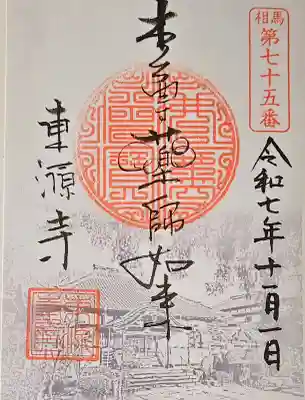 相馬
第七十五番
令和七年十一月一日
本尊薬師如来
東源寺